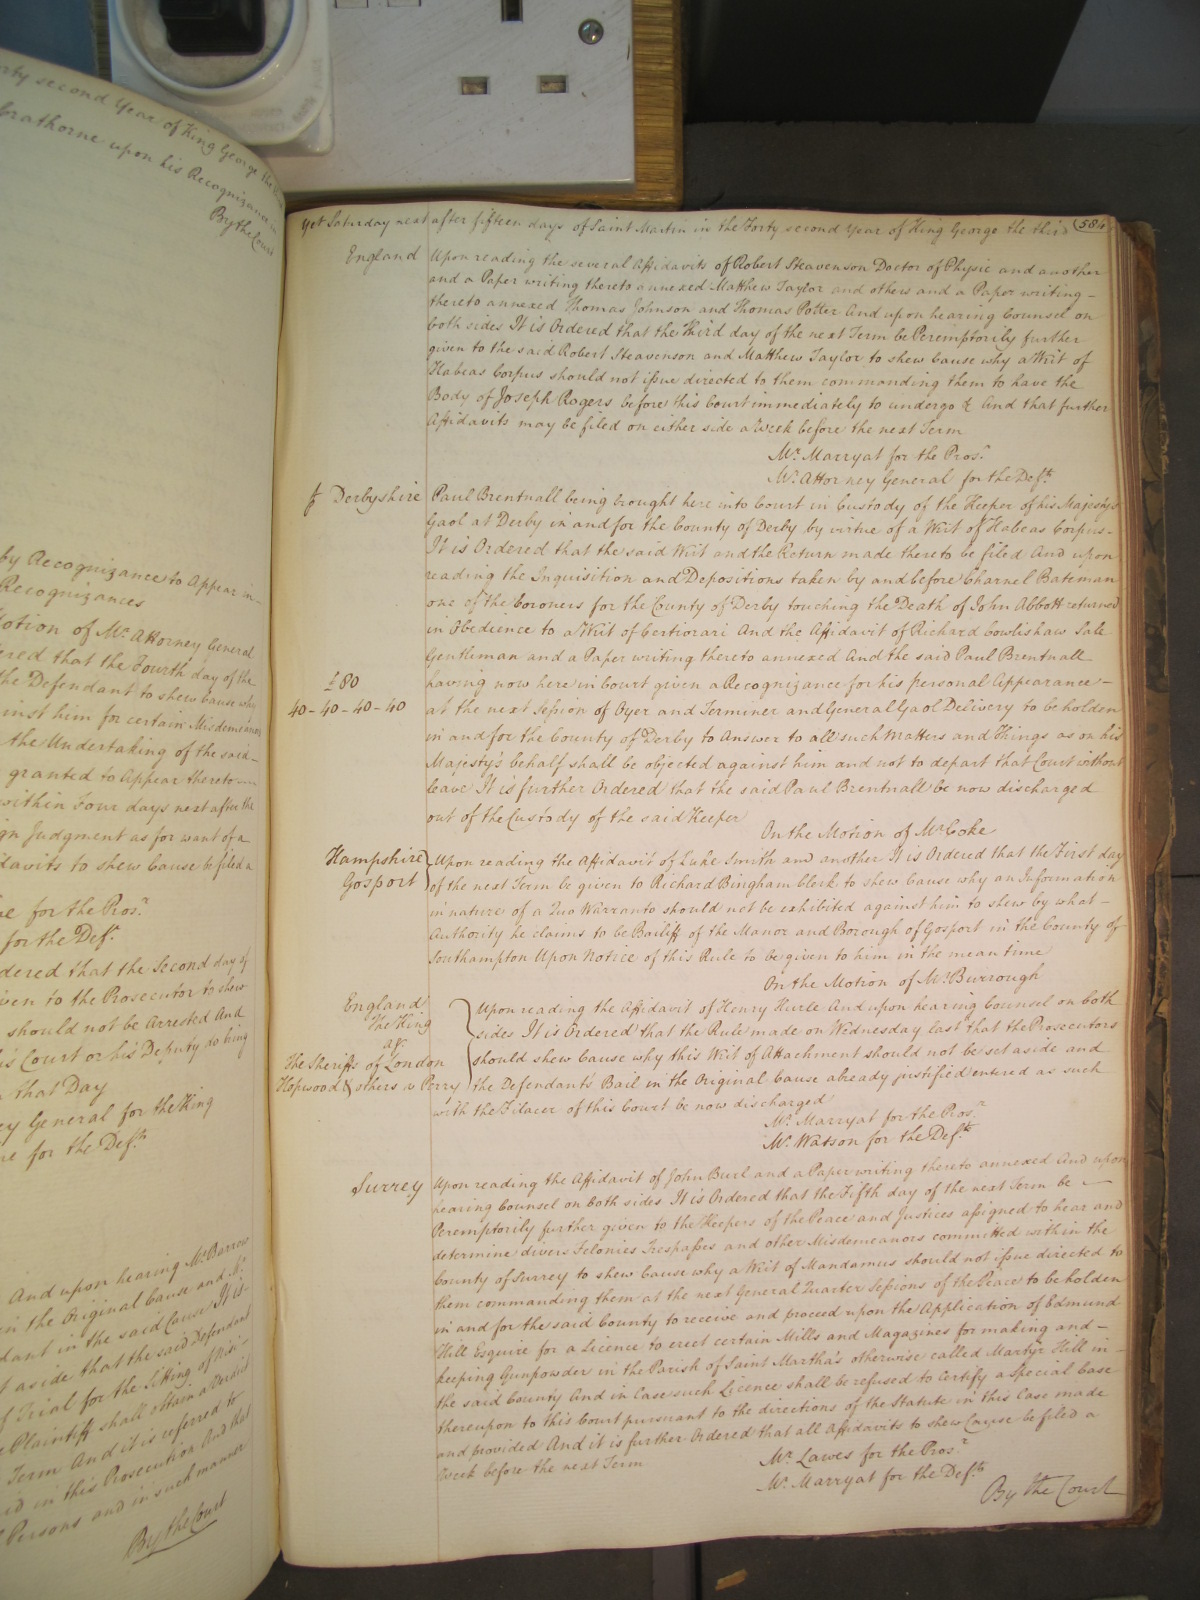 rty second Year of King George the
Crathorne upon his Recognizance
By the Court
by Recognizance to Appear in
Recognizances
otion of Mr. Attorney General
ered that the Fourth day of the
the Defendant to shew Cause why
inst him for certain Misdemeanors
the Undertaking of the said
granted to Appear thereto
within Four days next after the
gn Judgment as for want of a
davits to shew Cause be filed a
for the Prosr.
for the Deft.
dered that the Second day of
ven to the Prosecutor to shew
should not be Arrested And
is Court or his Deputy do bring
that Day
ey General for the King
re for the Defts.
And upon hearing Mr. Barrow
in the Original Cause and Mr.
dant in the said Cause It is
t aside that the said Defendant
f Trial for the Sitting of Nisi
e Plaintiff shall obtain a Verdict
Term And it is referred to
id in this Prosecution And that
Persons and in such manner
By the Court
Yet Saturday next after fifteen days of Saint Martin in the Forty second Year of King George the third (584)
England Upon reading the several Affidavits of Robert Steavenson Doctor of Physic and another
and a Paper writing thereto annexed Matthew Taylor and others and a Paper writing -
thereto annexed Thomas Johnson and Thomas Potter And upon hearing Counsel on
both sides It is Ordered that the Third day of the next Term be Peremptorily further
given to the said Robert Steavenson and Matthew Taylor to shew Cause why a Writ of
Habeas Corpus should not issue directed to them commanding them to have the
Body of Joseph Rogers before this Court immediately to undergo &c And that further
Affidavits may be filed on either side a Week before the next Term
Mr. Marryat for the Prosr.
Mr. Attorney General for the Defts.
Derbyshire Paul Brentnall being brought here into Court in Custody of the Keeper of his Majestys
Gaol at Derby in and for the County of Derby by virtue of a Writ of Habeas Corpus -
It is Ordered that the said Writ and the Return made thereto be filed And upon
reading the Inquisition and Depositions taken by and before Charnel Bateman
one of the Coroners for the County of Derby touching the Death of John Abbott returned
in Obedience to a Writ of Certiorari And the Affidavit of Richard Cowlishaw Sale
Gentleman and a Paper writing thereto annexed And the said Paul Brentnall
£80 having now here in Court given a Recognizance for his personal Appearance -
40 - 40 - 40 - 40 at the next Session of Oyer and Terminer and General Gaol Delivery to be holden
in and for the County of Derby to Answer to all such Matters and Things as on his
Majesty's behalf shall be objected against him and not to depart that Court without
leave It is further Ordered that the said Paul Brentnall be now discharged
out of the Custody of the said Keeper
On the Motion of Mr. Coke
Hampshire Upon reading the Affidavit of Luke Smith and another It is Ordered that the First day
Gosport of the next Term be given to Richard Bingham Clerk to shew Cause why an Information
in nature of a Quo Warranto should not be exhibited against him to shew by what -
Authority he claims to be Bailiff of the Manor and Borough of Gosport in the County of
Southampton Upon Notice of this Rule to be given to him in the mean time
On the Motion of Mr. Burrough
England Upon reading the Affidavit of Henry Hurle And upon hearing Counsel on both
The King sides It is Ordered that the Rule made on Wednesday last that the Prosecutors
agt.
The Sheriffs of London should shew Cause why this Writ of Attachment should not be set aside and
Hopwood & others v Perry the Defendant's Bail in the Original Cause already justified entered as such
with the Filacer of this Court be now discharged
Mr. Marryat for the Prosr.
Mr. Watson for the Defts.
Surrey Upon reading the Affidavit of John Burl and a Paper writing thereto annexed And upon
hearing Counsel on both sides It is Ordered that the Fifth day of the next Term be -
Peremptorily further given to the Keepers of the Peace and Justices assigned to hear and
determine divers Felonies Trespasses and other Misdemeanors committed within the
County of Surrey to shew Cause why a Writ of Mandamus should not issue directed to
them commanding them at the next General Quarter Sessions of the Peace to be holden
in and for the said County to receive and proceed upon the Application of Edmund
Hill Esquire for a Licence to erect certain Mills and Magazines for making and -
keeping Gunpowder in the Parish of Saint Martha's otherwise called Martyr Hill in -
the said County And in Case such Licence shall be refused to Certify a Special Case
thereupon to this Court pursuant to the directions of the Statute in this Case made
and provided And it is further Ordered that all Affidavits to shew Cause be filed a
Week before the next Term
Mr. Lawes for the Prosr.
Mr. Marryat for the Defts.
By the Court